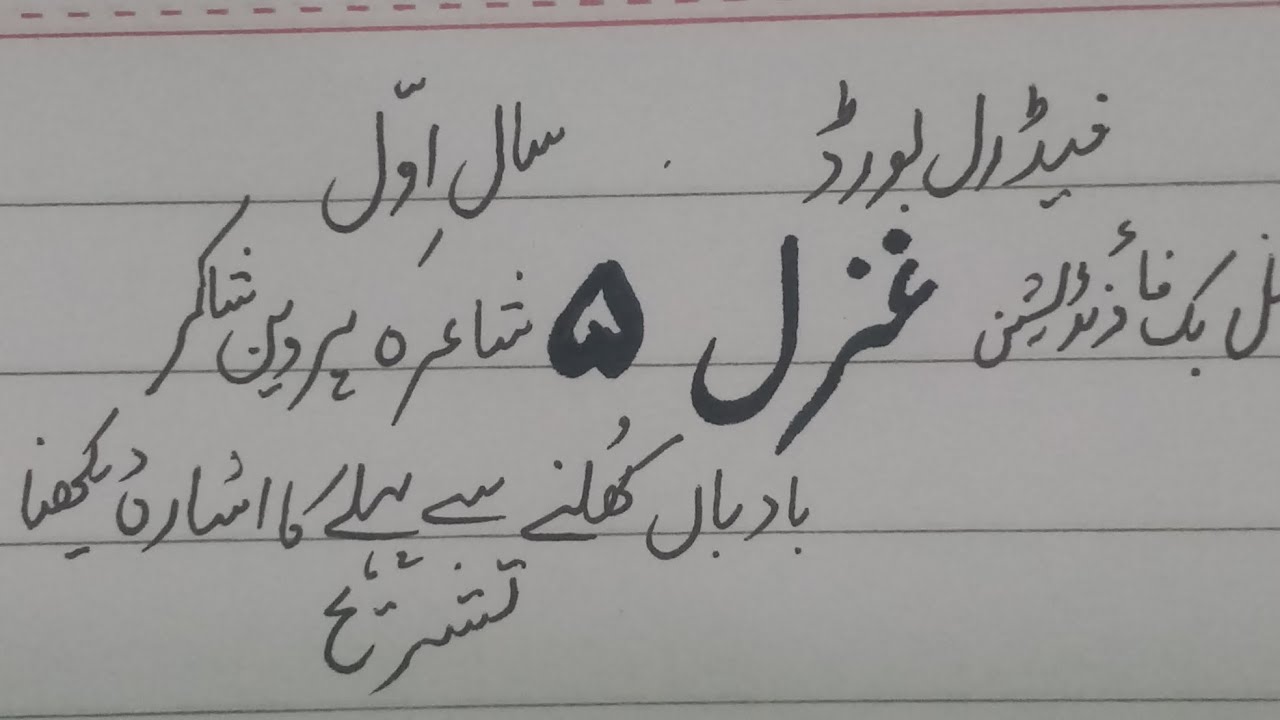 فیڈرل بورڈ سالِ اوّل
بک فاؤنڈیشن غزل ۵ شاعرہ پروین شاکر
بادباں کھُلنے سے پہلے کا اشارہ دیکھنا
تشریح